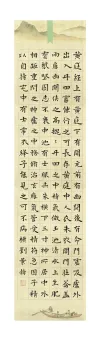 黄庭經上有黄庭下有關元前有幽闕後有命門噓吸廬外
出入丹田審能行之可長存黄庭中人衣朱衣關門壯籥蓋
兩扉幽闕俠之高巍巍丹田之中精氣微玉池清水上生肥
靈根堅固志不衰中池有士服赤朱橫下三寸神所居中外
相距重閉之神廬之中務修治玄膺氣管受精符急固子精
以自持宅中有士常衣絳子能見之可不病